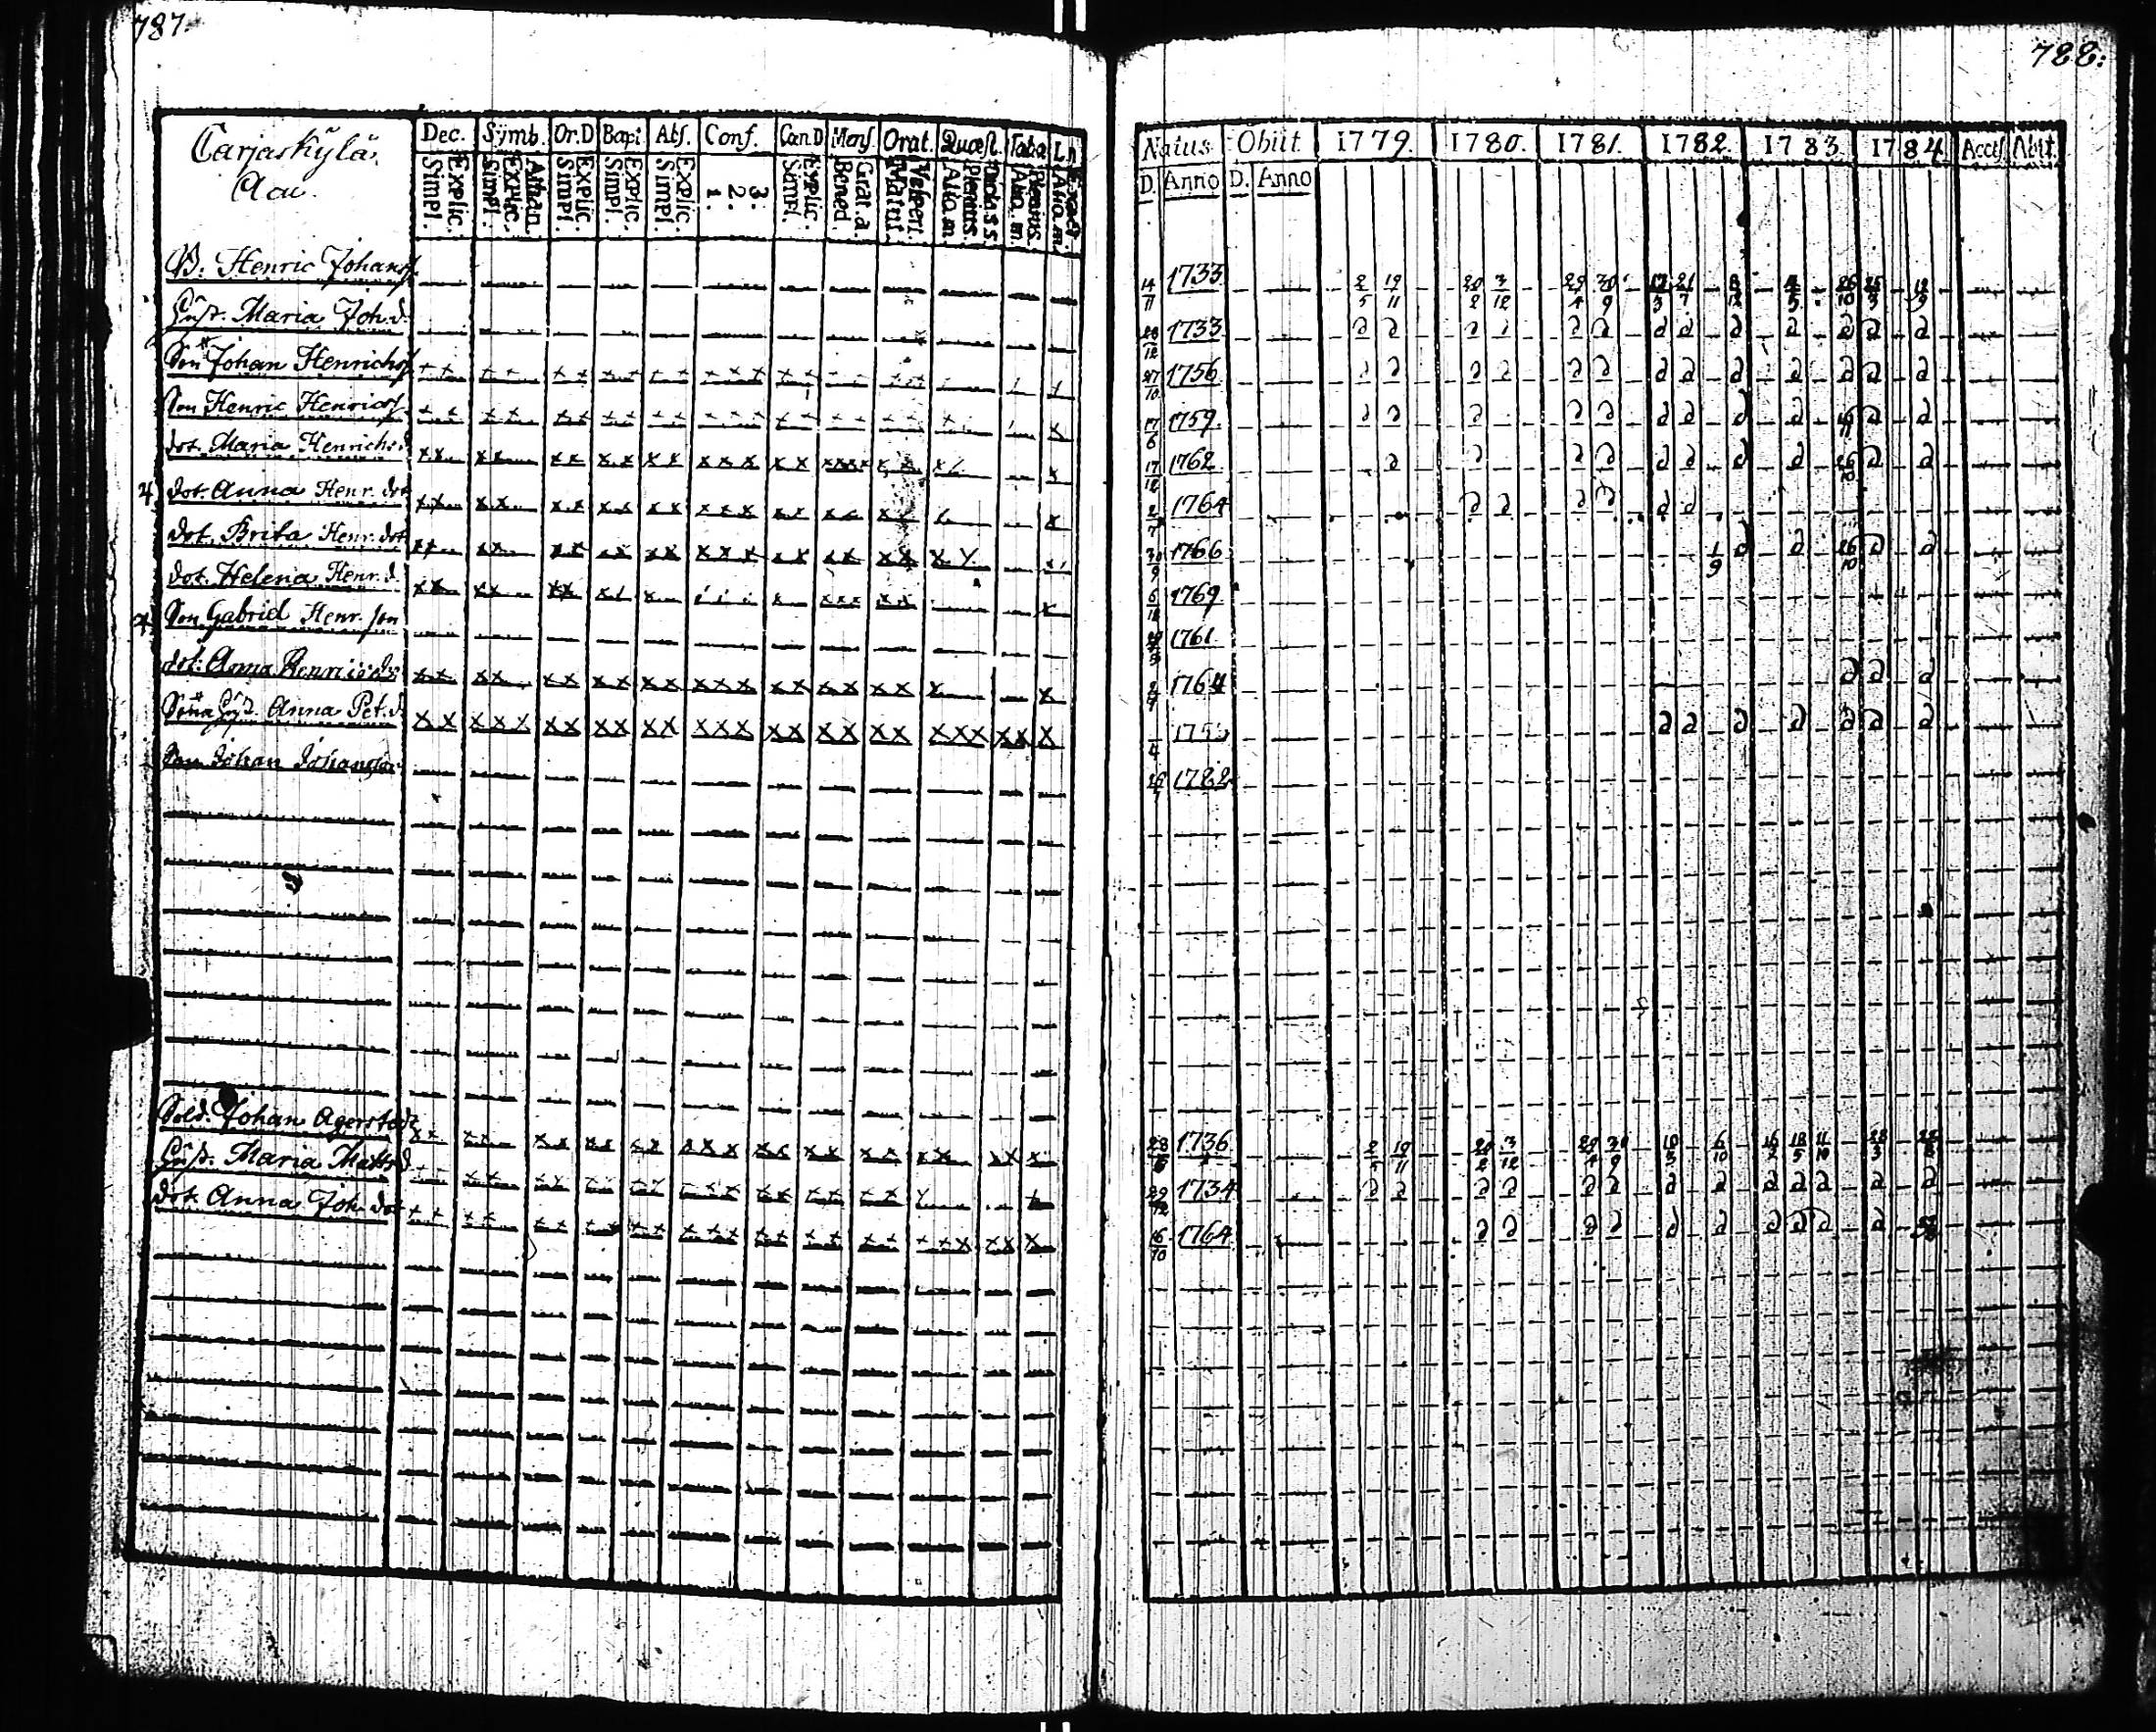 787.
Carjaskÿlä.
Aau.
Dec. Sÿmb. Or.D Bapt. Abs. Conf. Can.D Mens. Orat. Quæst. Taba
Explic. Simpl. Athan. Explic. Simpl. Explic. Simpl. Explic. Simpl. Explic. Simpl. 3. 2. 1. Explic. Simpl. Grat. a. Bened. Vesperi. Matut. Plenius. Alio. m. Plenius. Alio. m. Alio. m.
B. Henric Johans.
Hust. Maria Joh. d.
Son Johan Henrichs
Son Henric Henrics
dot. Maria Henrichs. d
4 dot. Anna Henr. dot
dot. Brita Henr. dot
dot. Helena Henr. d.
4 Son Gabriel Henr. son
dot. Anna Henrics do
Sons Hust. Anna Pet. d
Son Johan Johansson
Sold. Johan Agerstedt
Hust. Maria Matts d
dot. Anna Joh. dot
788:
Natus. Obiit 1779. 1780. 1781. 1782. 1783. 1784. Accес. Abit.
D. Anno D. Anno
14/11 1733 2/5 19/11 20/2 3/12 29/4 30/9 17/3 21/7 8/12 4/5 26/10 25/3 12/9
28/12 1733
27/10 1756
17/6 1759
17/12 1762 26/10
2/7 1764
30/9 1766 1/9 26/10
6/12 1769
1761
2/7 1764
4
26/1 1782
1736 2/5 19/11 20/2 3/12 29/4 30/9 6/10 18/5 11/10
29/12 1734
16/10 1764